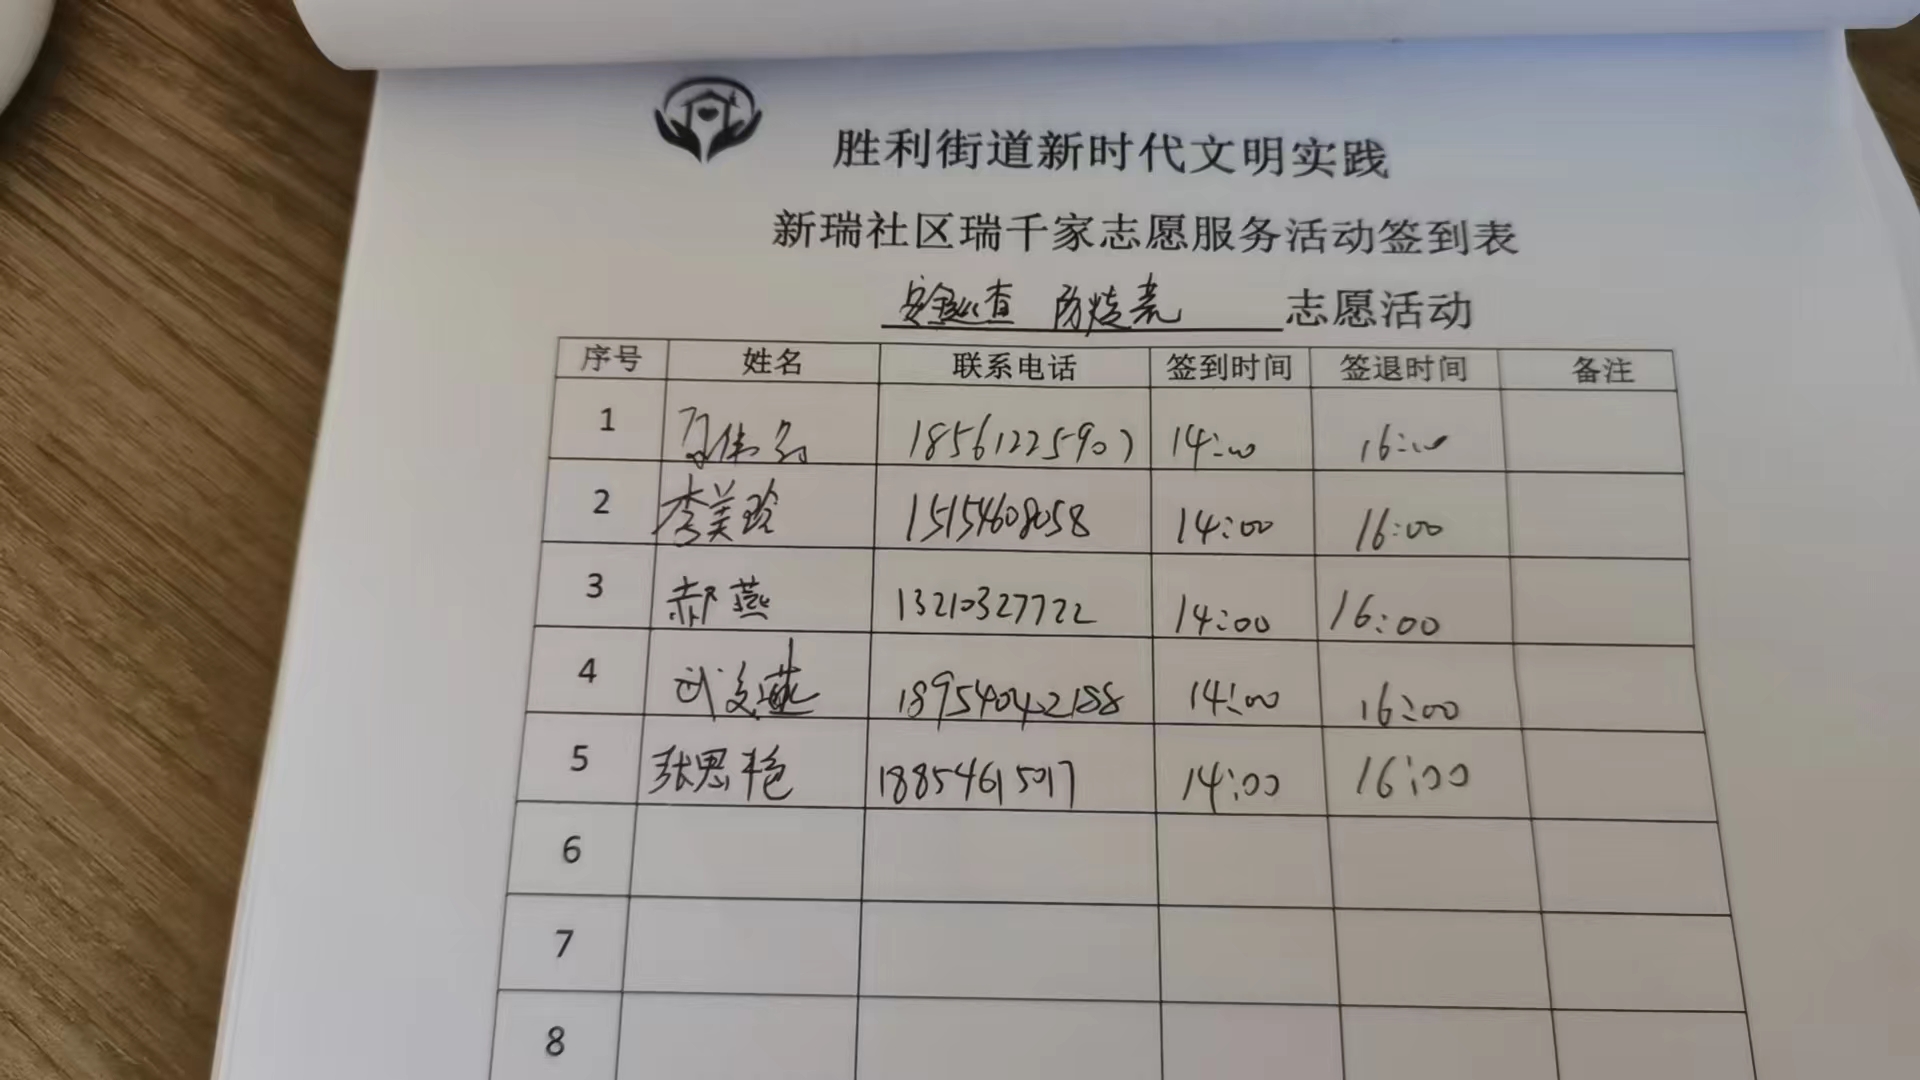 胜利街道新时代文明实践
新瑞社区瑞千家志愿服务活动签到表
安全巡查 防烧荒 志愿活动
序号 姓名 联系电话 签到时间 签退时间 备注
1 18561225907 14:00 16:00
2 李美玲 15154608058 14:00 16:00
3 郝燕 13210327722 14:00 16:00
4 武文燕 18954042188 14:00 16:00
5 张思艳 18854615017 14:00 16:00
6
7
8